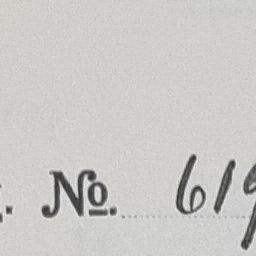 . No. 619